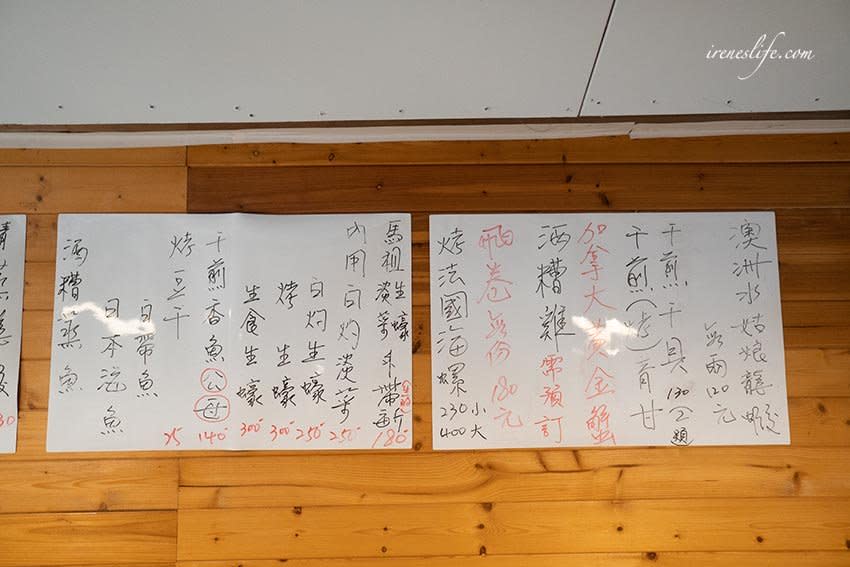 ireneslife.com
澳洲水姑娘龍蝦
每兩120元
干煎干貝 130
干煎 青甘
加拿大黃金蟹
酒糟雞 需預訂
卷每份180元
烤法國海螺 230小 400大
馬祖 生蠔 淡菜 180
內用白灼淡菜 250
白灼生蠔 250
烤生蠔 300
生食生蠔 300
干煎香魚 公 母 140
烤豆干 25
白帶魚
日本 魚
酒糟 魚